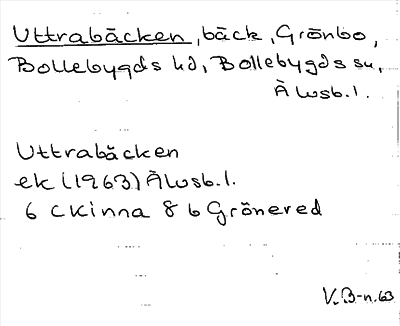 Uttrabäcken, bäck, Grönbo,
Bollebygds hd, Bollebygds sn,
Älvsb.l.
Uttrabäcken
ek (1963) Älvsb.l.
6 C Kinna 8 b Grönered
V.B-n.63